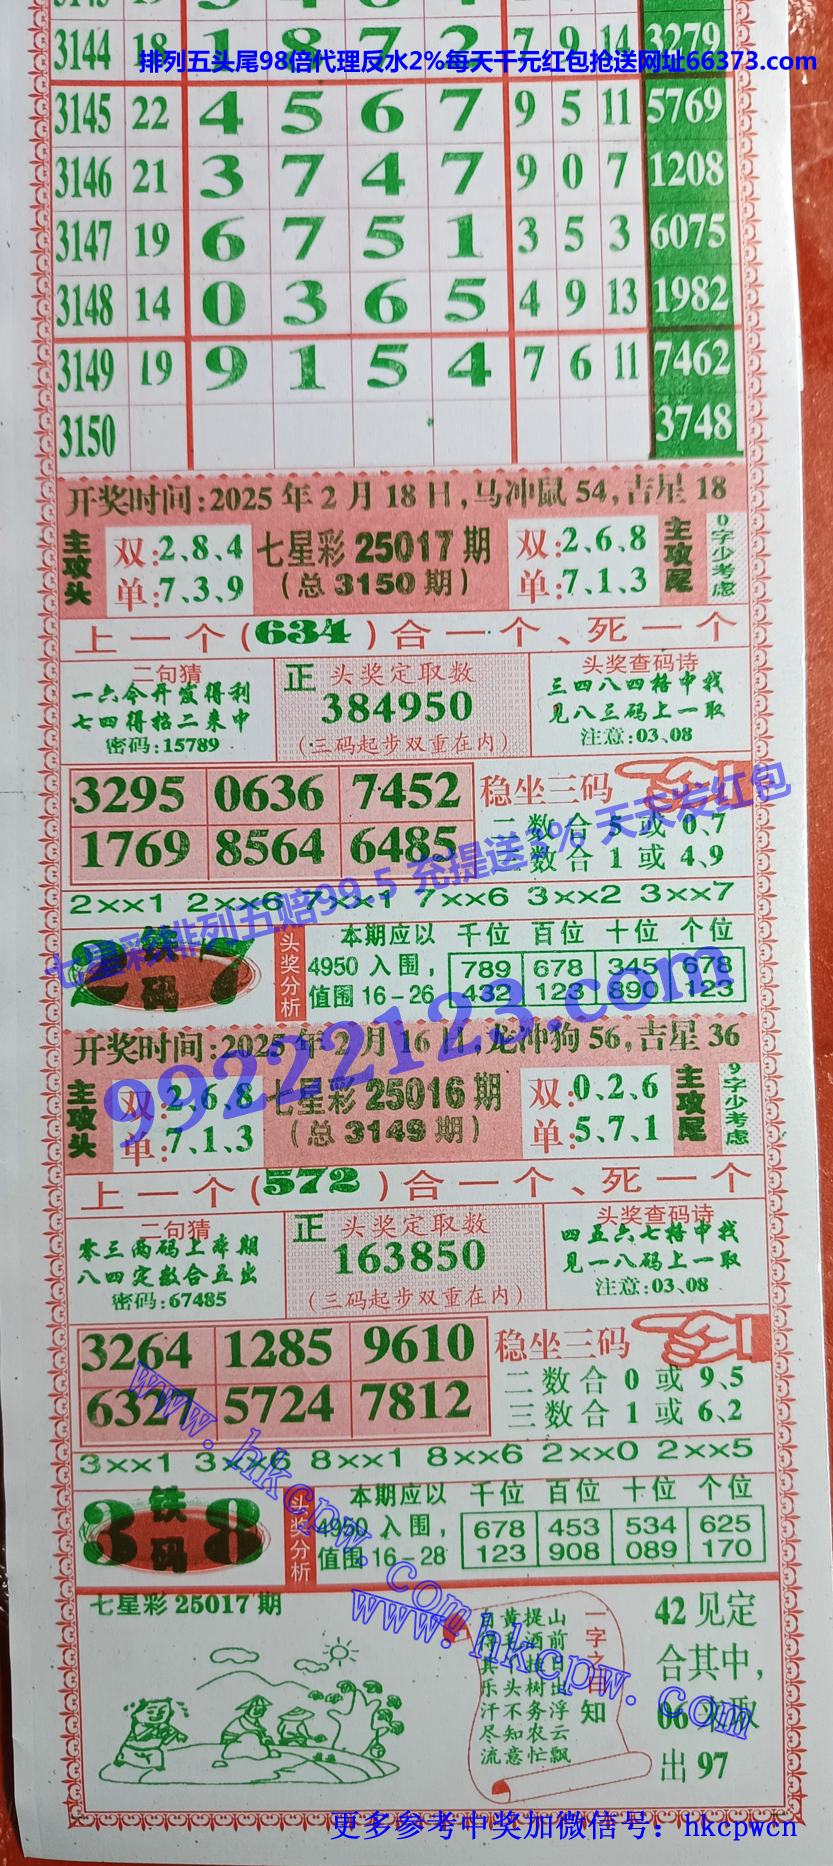 3144 18 1 8 7 2 7 9 14 3279
排列五头尾98倍代理反水2%每天千元红包抢送网址66373.com
3145 22 4 5 6 7 9 5 11 5769
3146 21 3 7 4 7 9 0 7 1208
3147 19 6 7 5 1 3 5 3 6075
3148 14 0 3 6 5 4 9 13 1982
3149 19 9 1 5 4 7 6 11 7462
3150 3748
开奖时间:2025年2月18日,马冲鼠54,吉星18
主攻头
双:2、8、4
单:7、3、9
七星彩25017期
(总3150期)
双:2、6、8
单:7、1、3
主攻尾
0字少考虑
上一个(634)合一个、死一个
二句猜
一六今开发得利
七四得招二来中
密码:15789
正 头奖定取数
384950
(三码起步双重在内)
头奖查码诗
三四八四格中找
见八三码上一取
注意:03、08
3295 0636 7452
1769 8564 6485
稳坐三码
二数合5或0、7
三数合1或4、9
七星彩排列五赔99.5 充提送3% 天天发红包
2××1 2××6 7××1 7××6 3××2 3××7
2铁码7
头奖分析
本期应以
4950入围,
值围16-26
千位 百位 十位 个位
789 678 345 678
432 123 890 123
99222123.com
开奖时间:2025年2月16日,龙冲狗56,吉星36
主攻头
双:2、6、8
单:7、1、3
七星彩25016期
(总3149期)
双:0、2、6
单:5、7、1
主攻尾
9字少考虑
上一个(572)合一个、死一个
二句猜
零三两码上本期
八四定数合五出
密码:67485
正 头奖定取数
163850
(三码起步双重在内)
头奖查码诗
四五六七格中找
见一八码上一取
注意:03、08
3264 1285 9610
6327 5724 7812
稳坐三码
二数合0或9、5
三数合1或6、2
3××1 3××6 8××1 8××6 2××0 2××5
3铁码8
头奖分析
本期应以
4950入围,
值围16-28
千位 百位 十位 个位
678 453 534 625
123 908 089 170
www.hkcpw.com
七星彩25017期
一字之曰 知
山前日出浮云飘
提酒桂树务农忙
黄毛 头不知意
乐汗尽流
www.hkcpw.com
42见定
合其中,
06来取
出97
更多参考中奖加微信号:hkcpwcn